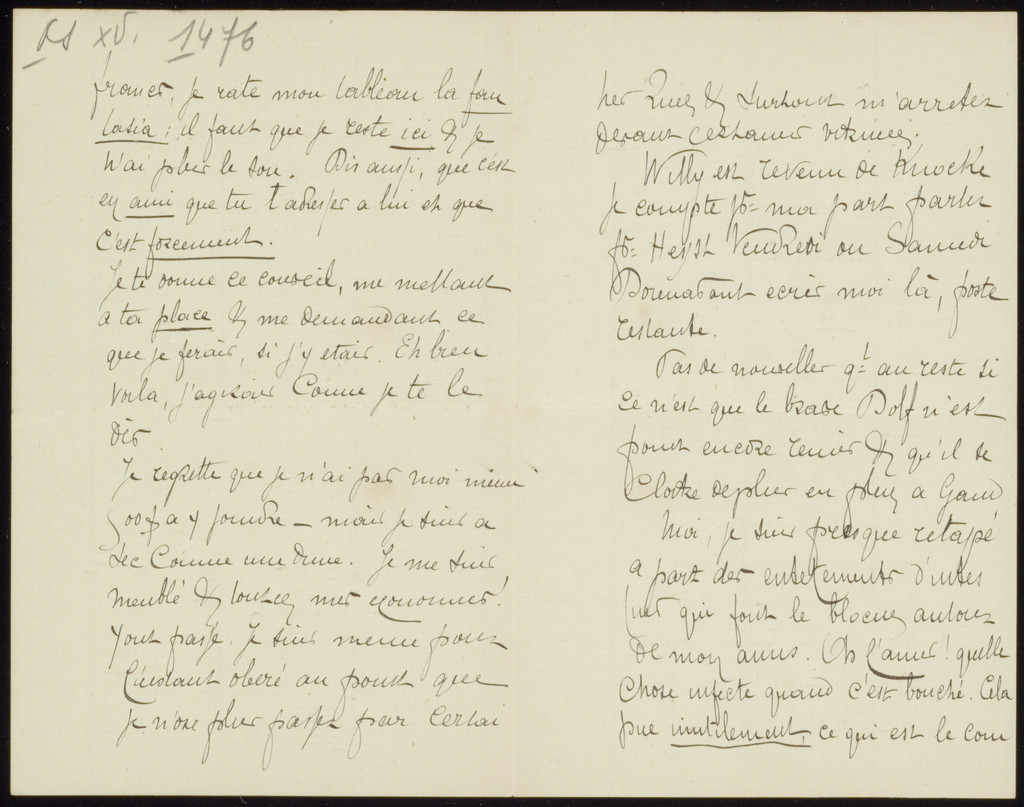 FS XV. 1476
francs, je rate mon tableau la fan
tasia ; il faut que je reste ici & je
n'ai plus le sou. Dis aussi, que c'est
en ami que tu t'adresses a lui et que
c'est forcement.
Je te donne ce conseil, me mettant
a ta place & me demandant ce
que je ferais, si j'y etais. Eh bien
voila, j'agirais comme je te le
dis
Je regrette que je n'ai pas moi même
500 f a y joindre – mais je suis a
sec comme une dune. Je me suis
meublé & toutes mes economies!
y ont passe. Je suis meme pour
l'instant obéré au point que
je n'ose plus passer par certai
nes rues & surtout m'arreter
devant certaines vitrines.
Willy est revenu de Knocke
je compte pr ma part partir
pr Heyst Vendredi ou Samedi
Dorenavant ecris moi là, poste
restante.
Pas de nouvelles qt au reste si
ce n'est que le brave Dolf n'est
point encore renier & qu'il se
cloitre deplus en plus a Gand
Moi, je suis presque retapé
a part des entetements d'intes
tins qui font le blocus autour
de mon anus. Oh l'anus! quelle
chose infecte quand c'est bouché. Cela
pue inutilement, ce qui est le com